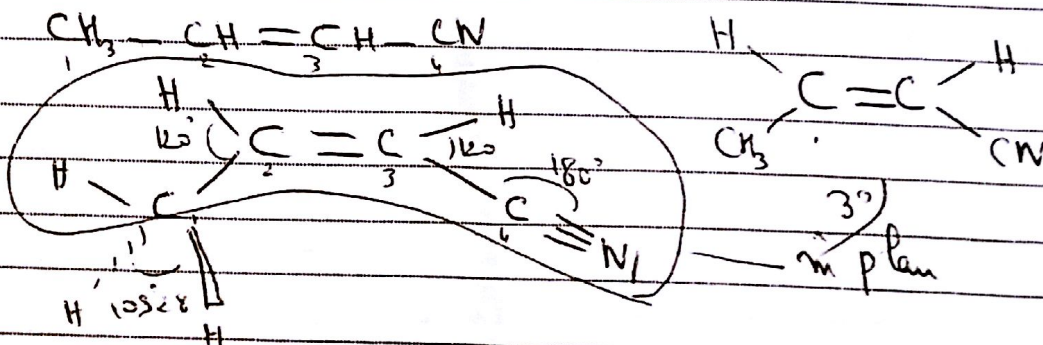 CH₃ — CH = CH — CN
1 2 3 4
H H
120° C = C 120
2 3
H C 180°
C ≡ N
4
H 109°28 H
H H
C = C
CH₃ CN
3°
m̂ plan